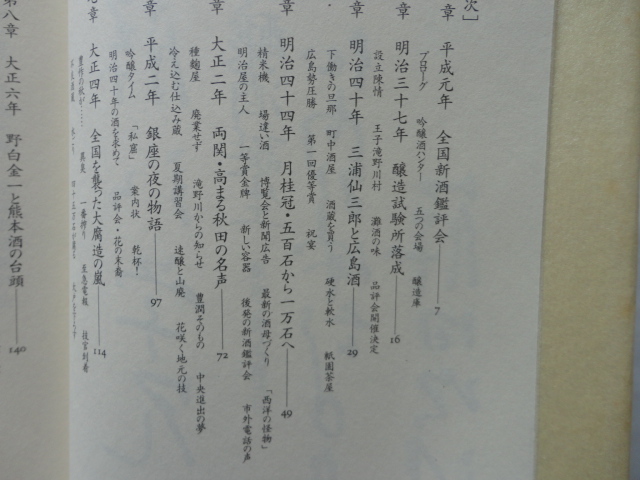 次]
章 平成元年 全国新酒鑑評会――7
プロローグ 吟醸酒ハンター 五つの会場 醸造庫
章 明治三十七年 醸造試験所落成――16
設立陳情 王子滝野川村 灘酒の味 品評会開催決定
章 明治四十年 三浦仙三郎と広島酒――29
下働きの旦那 町中酒屋 酒蔵を貰う 硬水と軟水 祇園茶屋
広島勢圧勝 第一回優等賞 祝宴
章 明治四十四年 月桂冠・五百石から一万石へ――49
精米機 場違い酒 博覧会と新聞広告 最新の酒母づくり 「西洋の怪物」
明治屋の主人 一等賞金牌 新しい容器 後発の新酒鑑評会 市外電話の声
章 大正二年 両関・高まる秋田の名声――72
種麹屋 廃業せず 滝野川からの知らせ 豊潤そのもの 中央進出の夢
冷え込む仕込み蔵 夏期講習会 速醸と山廃 花咲く地元の技
章 平成二年 銀座の夜の物語――97
吟醸タイム 「私窟」 案内状 乾杯!
明治四十年の酒を求めて 品評会・花の末裔
章 大正四年 全国を襲った大腐造の嵐――114
豊作の秋が…… 異臭 一番搾り 至急電報 技官到着
第八章 大正六年 野白金一と熊本酒の台頭――140